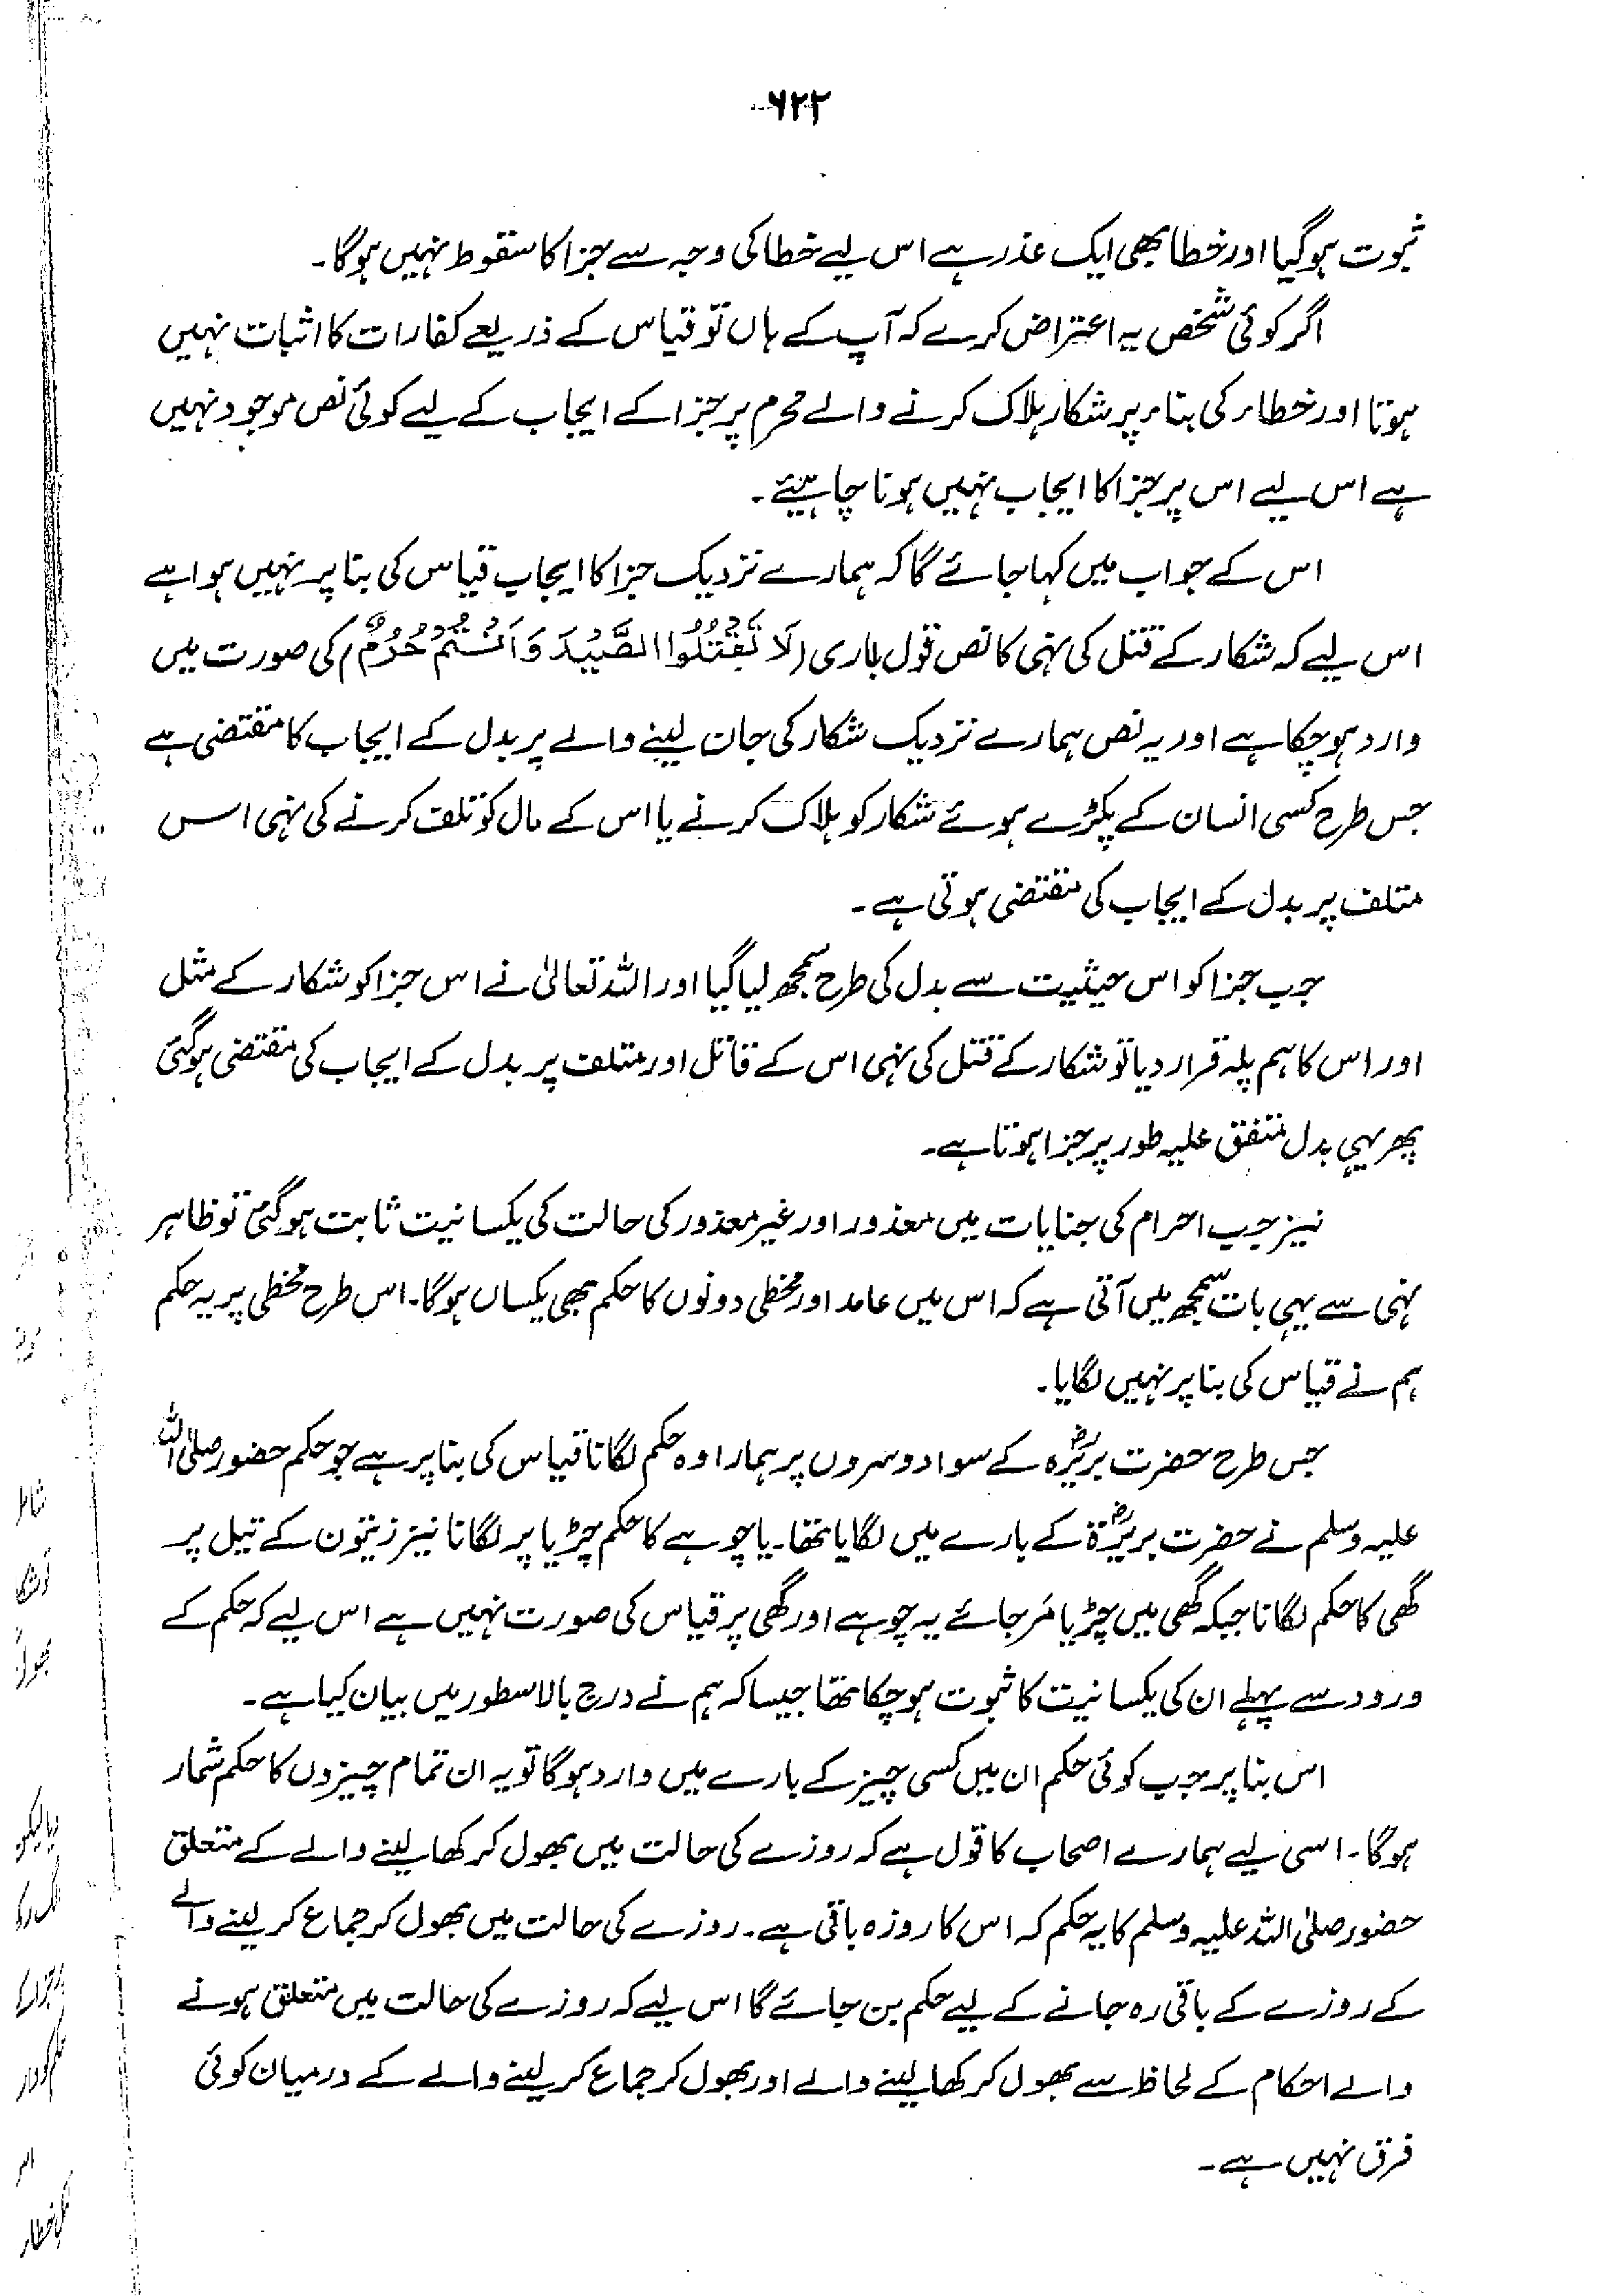 ۶۲۲
ثبوت ہوگیا اور خطا بھی ایک عذر ہے اس لیے خطا کی وجہ سے جزا کا سقوط نہیں ہوگا۔
اگر کوئی شخص یہ اعتراض کرے کہ آپ کے ہاں تو قیاس کے ذریعے کفارات کا اثبات نہیں
ہوتا اور خطاء کی بناء پر شکار ہلاک کرنے والے محرم پر جزا کے ایجاب کے لیے کوئی نص موجود نہیں
ہے اس لیے اس پر جزا کا ایجاب نہیں ہونا چاہیئے۔
اس کے جواب میں کہا جائے گا کہ ہمارے نزدیک جزا کا ایجاب قیاس کی بنا پر نہیں ہوا ہے
اس لیے کہ شکار کے قتل کی نہی کا نص قول باری (لَا تَقْتُلُوا الصَّيْدَ وَاَنْتُمْ حُرُمٌ) کی صورت میں
وارد ہو چکا ہے اور یہ نص ہمارے نزدیک شکار کی جان لینے والے پر بدل کے ایجاب کا مقتضی ہے
جس طرح کسی انسان کے پکڑے ہوئے شکار کو ہلاک کرنے یا اس کے مال کو تلف کرنے کی نہی اس
متلف پر بدل کے ایجاب کی مقتضی ہوتی ہے۔
جب جزا کو اس حیثیت سے بدل کی طرح سمجھ لیا گیا اور اللہ تعالیٰ نے اس جزا کو شکار کے مثل
اور اس کا ہم پلہ قرار دیا تو شکار کے قتل کی نہی اس کے قاتل اور متلف پر بدل کے ایجاب کی مقتضی ہوگئی
پھر یہی بدل متفق علیہ طور پر جزا ہوتا ہے۔
نیز جب احرام کی جنایات میں معذور اور غیر معذور کی حالت کی یکسانیت ثابت ہوگئی تو ظاہر
نہی سے یہی بات سمجھ میں آتی ہے کہ اس میں عامد اور مخطی دونوں کا حکم بھی یکساں ہوگا۔ اس طرح مخطی پر یہ حکم
ہم نے قیاس کی بنا پر نہیں لگایا۔
جس طرح حضرت بریرؓہ کے سوا دوسروں پر ہمارا وہ حکم لگانا قیاس کی بنا پر ہے جو حکم حضور صلی اللہ
علیہ وسلم نے حضرت بریرؓۃ کے بارے میں لگایا تھا۔ یا چوہے کا حکم چڑیا پر لگانا نیز زیتون کے تیل پر
گھی کا حکم لگانا جبکہ گھی میں چڑیا مَر جائے یہ چوہے اور گھی پر قیاس کی صورت نہیں ہے اس لیے کہ حکم کے
ورود سے پہلے ان کی یکسانیت کا ثبوت ہو چکا تھا جیسا کہ ہم نے درج بالا سطور میں بیان کیا ہے۔
اس بنا پر جب کوئی حکم ان میں کسی چیز کے بارے میں وارد ہوگا تو یہ ان تمام چیزوں کا حکم شمار
ہوگا۔ اسی لیے ہمارے اصحاب کا قول ہے کہ روزے کی حالت میں بھول کر کھا لینے والے کے متعلق
حضور صلی اللہ علیہ وسلم کا یہ حکم کہ اس کا روزہ باقی ہے۔ روزے کی حالت میں بھول کر جماع کر لینے والے
کے روزے کے باقی رہ جانے کے لیے حکم بن جائے گا اس لیے کہ روزے کی حالت میں متعلق ہونے
والے احکام کے لحاظ سے بھول کر کھا لینے والے اور بھول کر جماع کر لینے والے کے درمیان کوئی
فرق نہیں ہے۔